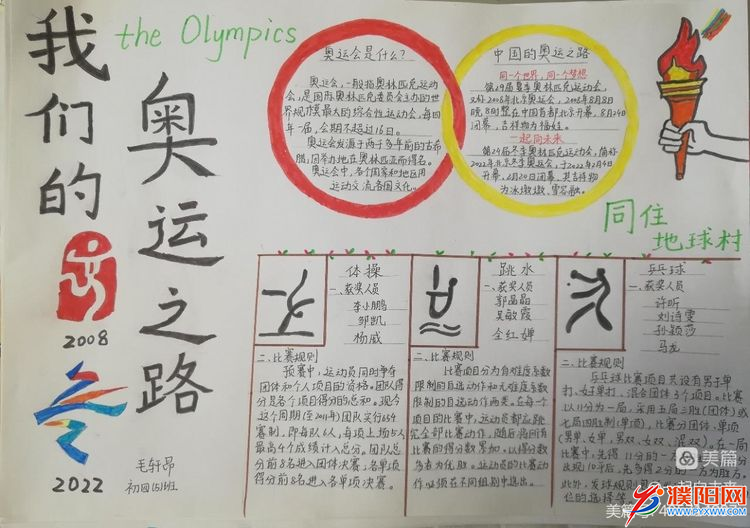 我们的
奥运之路
the Olympics
2008
2022
毛轩昂
奥运会是什么?
奥运会,一般指奥林匹克运动
会,是国际奥林匹克委员会主办的世
界规模最大的综合性运动会,每四
年一届,会期不超过16日。
奥运会发源于两千多年前的古希
腊,因举办地在奥林匹亚而得名。
奥运会中,各个国家和地区用
运动交流各国文化。
中国的奥运之路
同一个世界,同一个梦想
第29届夏季奥林匹克运动会,
又称2008年北京奥运会,2008年8月8日
晚8时整在中国首都北京开幕,8月24日
闭幕,吉祥物为福娃。
一起向未来
第24届冬季奥林匹克运动会,简称
2022年北京冬季奥运会,于2022年2月4日
开幕,2月20日闭幕,其吉祥物
为冰墩墩、雪容融。
同住
地球村
体操
一、获奖人员
李小鹏
邹凯
杨威
二、比赛规则
预赛中,运动员同时争夺
团体和个人项目的资格。团体得
分是各个项目得分的总和。现今
这个周期(至2011年)团队实行654
赛制,即每队6人,每项上场5人
最高4个成绩计入总分。团队总
分前8名进入团体决赛,各单项
得分前8名进入各单项决赛。
跳水
一、获奖人员
郭晶晶
吴敏霞
全红婵
二、比赛规则
比赛项目分为有难度系数
限制的自选动作和无难度系数
限制的自选动作两类。在每个
项目的比赛中,运动员都应跳
完全部比赛动作,随后将所有
比赛的得分数累加,以得分数
多者为优胜。运动员的比赛动
作必须在不同组别中选出。
乒乓球
一、获奖人员
许昕
刘诗雯
孙颖莎
马龙
二、比赛规则
乒乓球比赛项目共设有男子单
打、女子单打、混合团体3个项目。比赛
以11分为一局,采用五局三胜(团体)或
七局四胜制(单项),比赛分团体、单项
(男单、女单,男双、女双、混双)。在一局
比赛中,先得11分的一方
出现10平后,先多得2分的一方为胜方。
位的选择等
美篇
濮阳网
WWW.PYXWW.COM